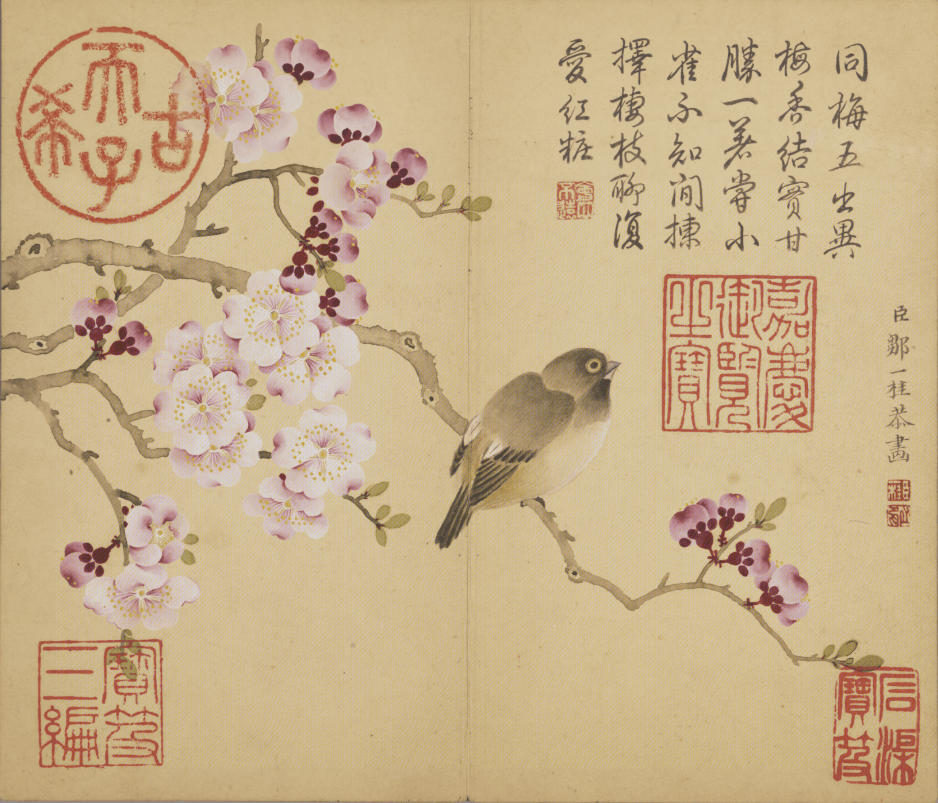 同梅五出異
梅香結實甘
勝一著嘗小
雀不知閒揀
擇棲枝聊復
愛紅粧
臣鄒一桂恭畫
嘉慶御覽之寶
古希天子
石渠寶笈
寶笈三編